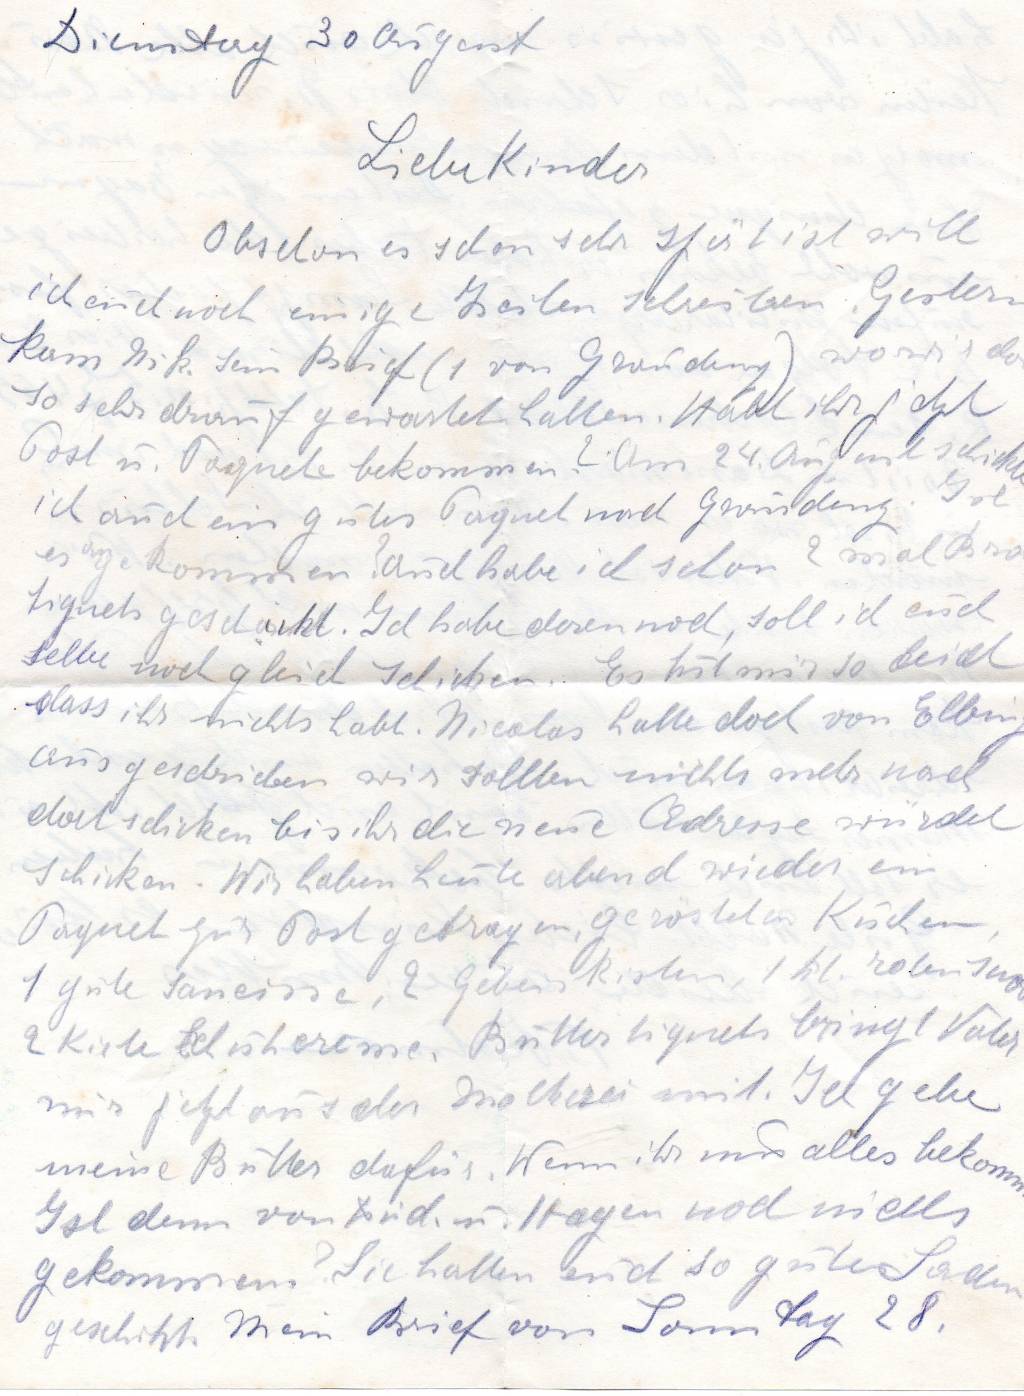 Dienstag 30 August
Liebe Kinder
Obschon es schon sehr spät ist will
ich euch noch einige Zeilen schreiben. Gestern
kam Nik. sein Brief (1 von Graudenz) wo wir do
so sehr drauf gewartet hatten. Habt ihr jetzt
Post u. Paquete bekommen? Am 24. August schickte
ich auch ein gutes Paquet nach Graudenz. Ist
es angekommen? Auch habe ich schon 2 mal Bro
tiquets geschickt. Ich habe deren noch, soll ich euch
selbe noch gleich schicken. Es tut mir so leid
dass ihr nichts habt. Nicolas hatte doch von Elbing
aus geschrieben wir sollten nichts mehr nach
dort schicken bis ihr die neue Adresse würdet
schicken. Wir haben heute abend wieder ein
Paquet zur Post getragen, gerösteter Kuchen,
1 gute saucisse, 2 1 roten
2 Kiste Schuhcreme. Buttertiquets bringt Vater
mir jetzt aus der Molkerei mit. Ich gebe
meine Butter dafür. Wenn ihr nur alles bekomm
Ist denn von u. Hagen noch nichts
gekommen? Sie hatten euch so gute Sachen
geschickt. Mein Brief vom Sonntag 28.